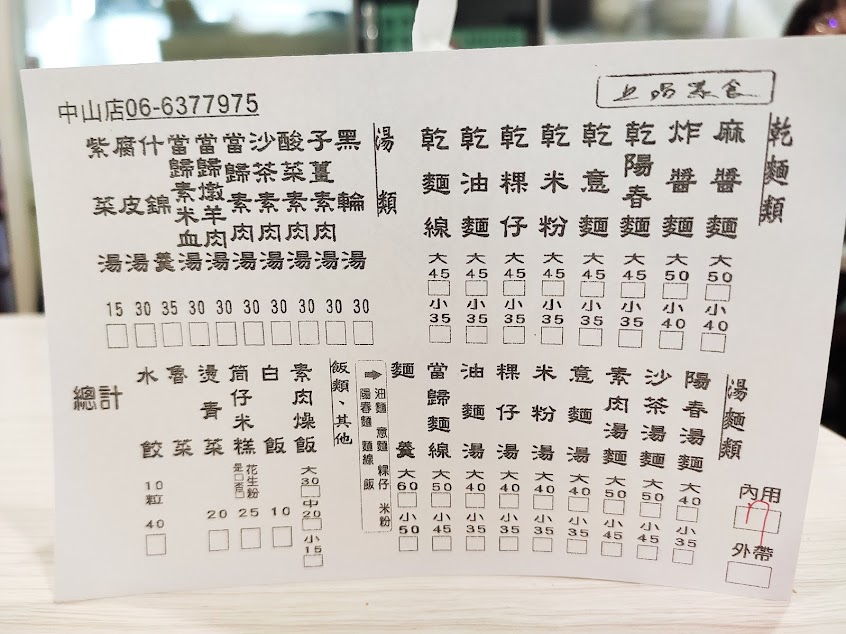 中山店06-6377975
乾麵類
麻醬麵 大50 小40
炸醬麵 大50 小40
乾陽春麵 大45 小35
乾意麵 大45 小35
乾米粉 大45 小35
乾粿仔 大45 小35
乾油麵 大45 小35
乾麵線 大45 小35
湯類
黑輪湯 30
子薑素肉湯 30
酸菜素肉湯 30
沙茶素肉湯 30
當歸素肉湯 30
當歸燉羊肉湯 30
當歸素米血湯 30
什錦羹 35
腐皮湯 30
紫菜湯 15
湯麵類
陽春湯麵 大40 小35
沙茶湯麵 大50 小45
素肉湯麵 大50 小45
意麵湯 大40 小35
米粉湯 大40 小35
粿仔湯 大40 小35
油麵湯 大40 小35
當歸麵線 大50 小45
麵羹 大60 小50
➡ 油麵 意麵 粿仔 米粉
陽春麵 麵線 飯
飯類、其他
素肉燥飯 大30 中20 小15
白飯 10
筒仔米糕 花生粉 是□否□ 25
燙青菜 20
魯菜
水餃 10粒 40
總計
內用
外帶